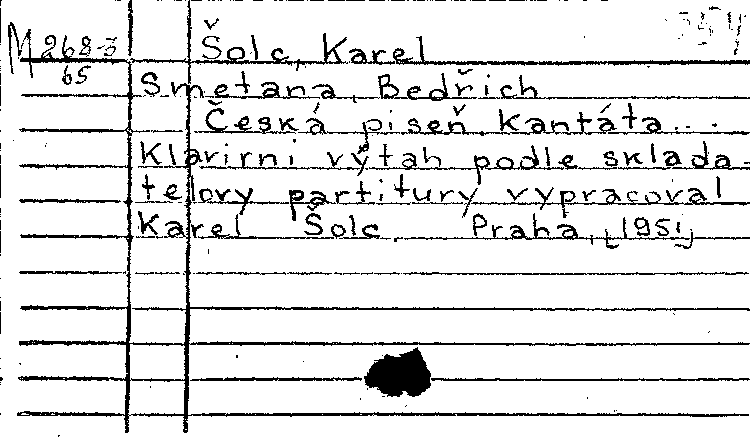 M 268-3 Šolc, Karel 354
65 Smetana, Bedřich
Česká piseň. Kantáta...
Klavirni výtah podle sklada-
telovy partitury vypracoval
Karel Šolc. Praha, [1951]